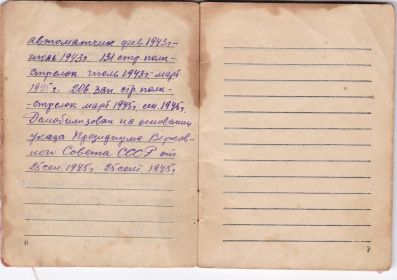 автоматчик фев 1943г-
июль 1943г. 131 стр. полк-
стрелок июль 1943г- март
г. 206. зап. стр полк-
-стрелок март 1945г сен. 1945г.
Демобилизован на основании
указа Президиума Верхов-
ного Совета СССР от
25 сен. 1945г 25 сент. 1945г
6
7